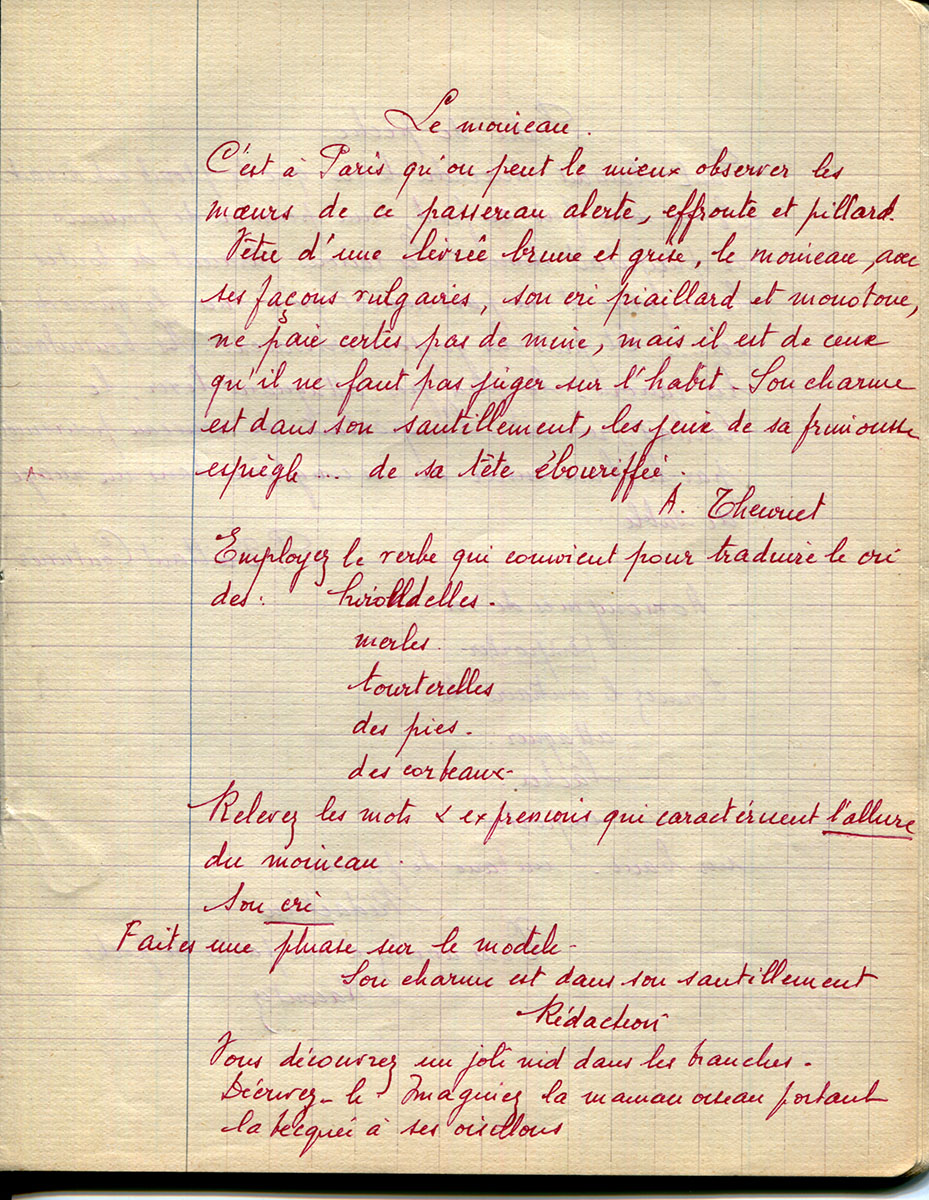 Le moineau.
C'est à Paris qu'on peut le mieux observer les
mœurs de ce passereau alerte, effronté et pillard.
Vêtu d'une livrée brune et grise, le moineau, avec
ses façons vulgaires, son cri piaillard et monotone,
ne paie certes pas de mine, mais il est de ceux
qu'il ne faut pas juger sur l'habit. Son charme
est dans son sautillement, les jeux de sa frimousse
espiègle... de sa tête ébouriffée.
A. Theuriet
Employez le verbe qui convient pour traduire le cri
des: hirondelles.
merles.
tourterelles
des pies.
des corbeaux.
Relevez les mots & expressions qui caractérisent l'allure
du moineau.
Son cri
Faites une phrase sur le modèle -
Son charme est dans son sautillement
Rédaction
Vous découvrez un joli nid dans les branches.
Décrivez-le. Imaginez la maman oiseau portant
la becquée à ses oisillons